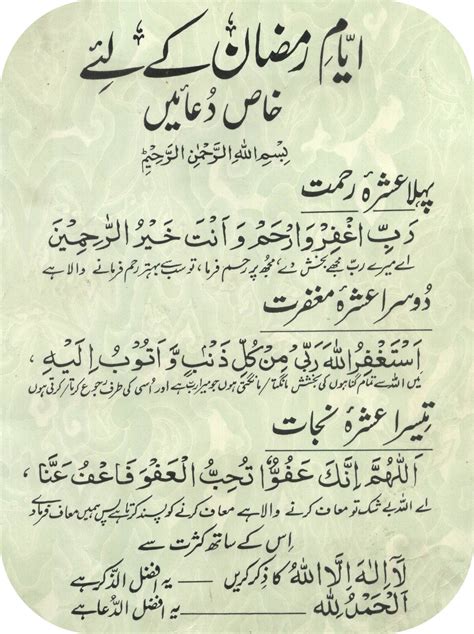 ایّامِ رمضان کے لئے
خاص دُعائیں
بِسْمِ اللهِ الرَّحْمٰنِ الرَّحِيْمِ
پہلا عشرۂ رحمت
رَبِّ اغْفِرْ وَارْحَمْ وَاَنْتَ خَيْرُ الرّٰحِمِيْنَ
اے میرے رب مجھے بخش دے، مجھ پر رحم فرما، تو سب سے بہتر رحم فرمانے والا ہے
دُوسرا عشرۂ مغفرت
اَسْتَغْفِرُ اللهَ رَبِّىْ مِنْ كُلِّ ذَنْبٍ وَّاَتُوْبُ اِلَيْهِ ،
میں اللہ سے تمام گناہوں کی بخشش مانگتا/مانگتی ہوں جو میرا رب ہے اور اُسی کی طرف رجوع کرتا/کرتی ہوں
تیسرا عشرۂ نجات
اَللّٰهُمَّ اِنَّكَ عَفُوٌّ تُحِبُّ الْعَفْوَ فَاعْفُ عَنَّا ،
اے اللہ بے شک تو معاف کرنے والا ہے معاف کرنے کو پسند کرتا ہے پس ہمیں معاف فرما دے
اِس کے ساتھ کثرت سے
لَآ اِلٰهَ اِلَّا اللهُ کا ذکر کریں — یہ افضل الذّکر ہے
اَلْحَمْدُ لِلّٰهِ — یہ افضل الدُّعا ہے